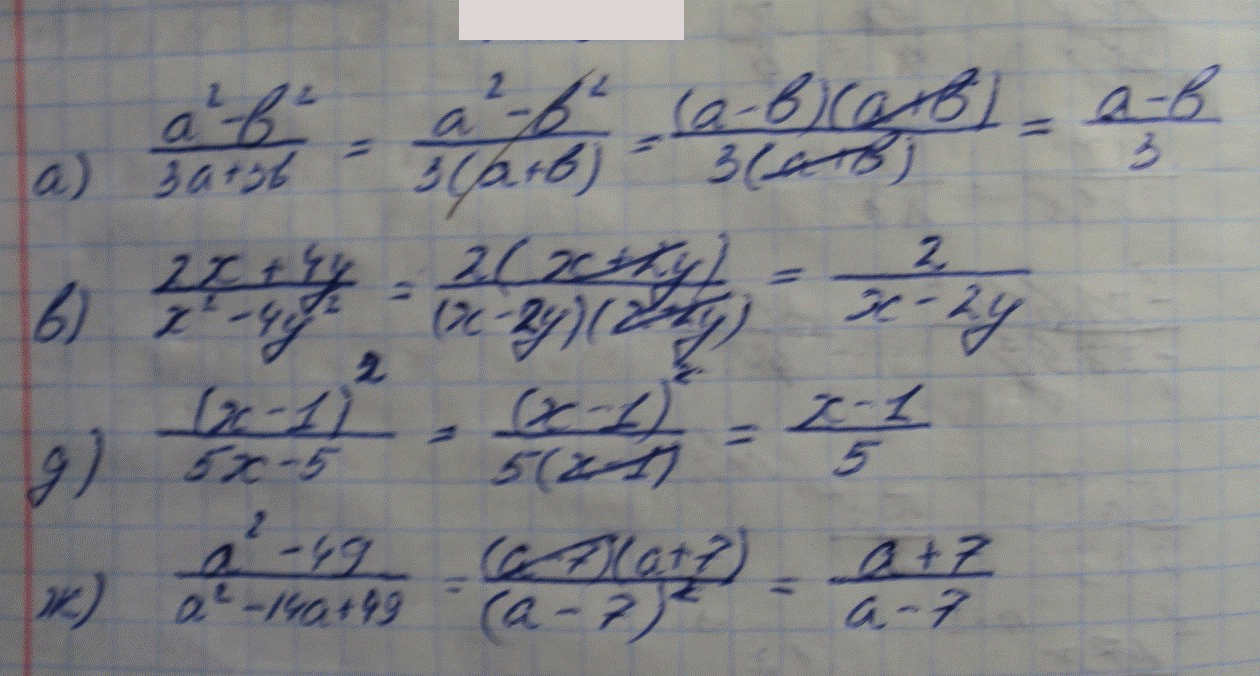 а) (a² - b²)/(3a + 3b) = (a² - b²)/(3(a + b)) = ((a - b)(a + b))/(3(a + b)) = (a - b)/3
в) (2x + 4y)/(x² - 4y²) = (2(x + 2y))/((x - 2y)(x + 2y)) = 2/(x - 2y)
д) (x - 1)²/(5x - 5) = (x - 1)²/(5(x - 1)) = (x - 1)/5
ж) (a² - 49)/(a² - 14a + 49) = ((a - 7)(a + 7))/(a - 7)² = (a + 7)/(a - 7)